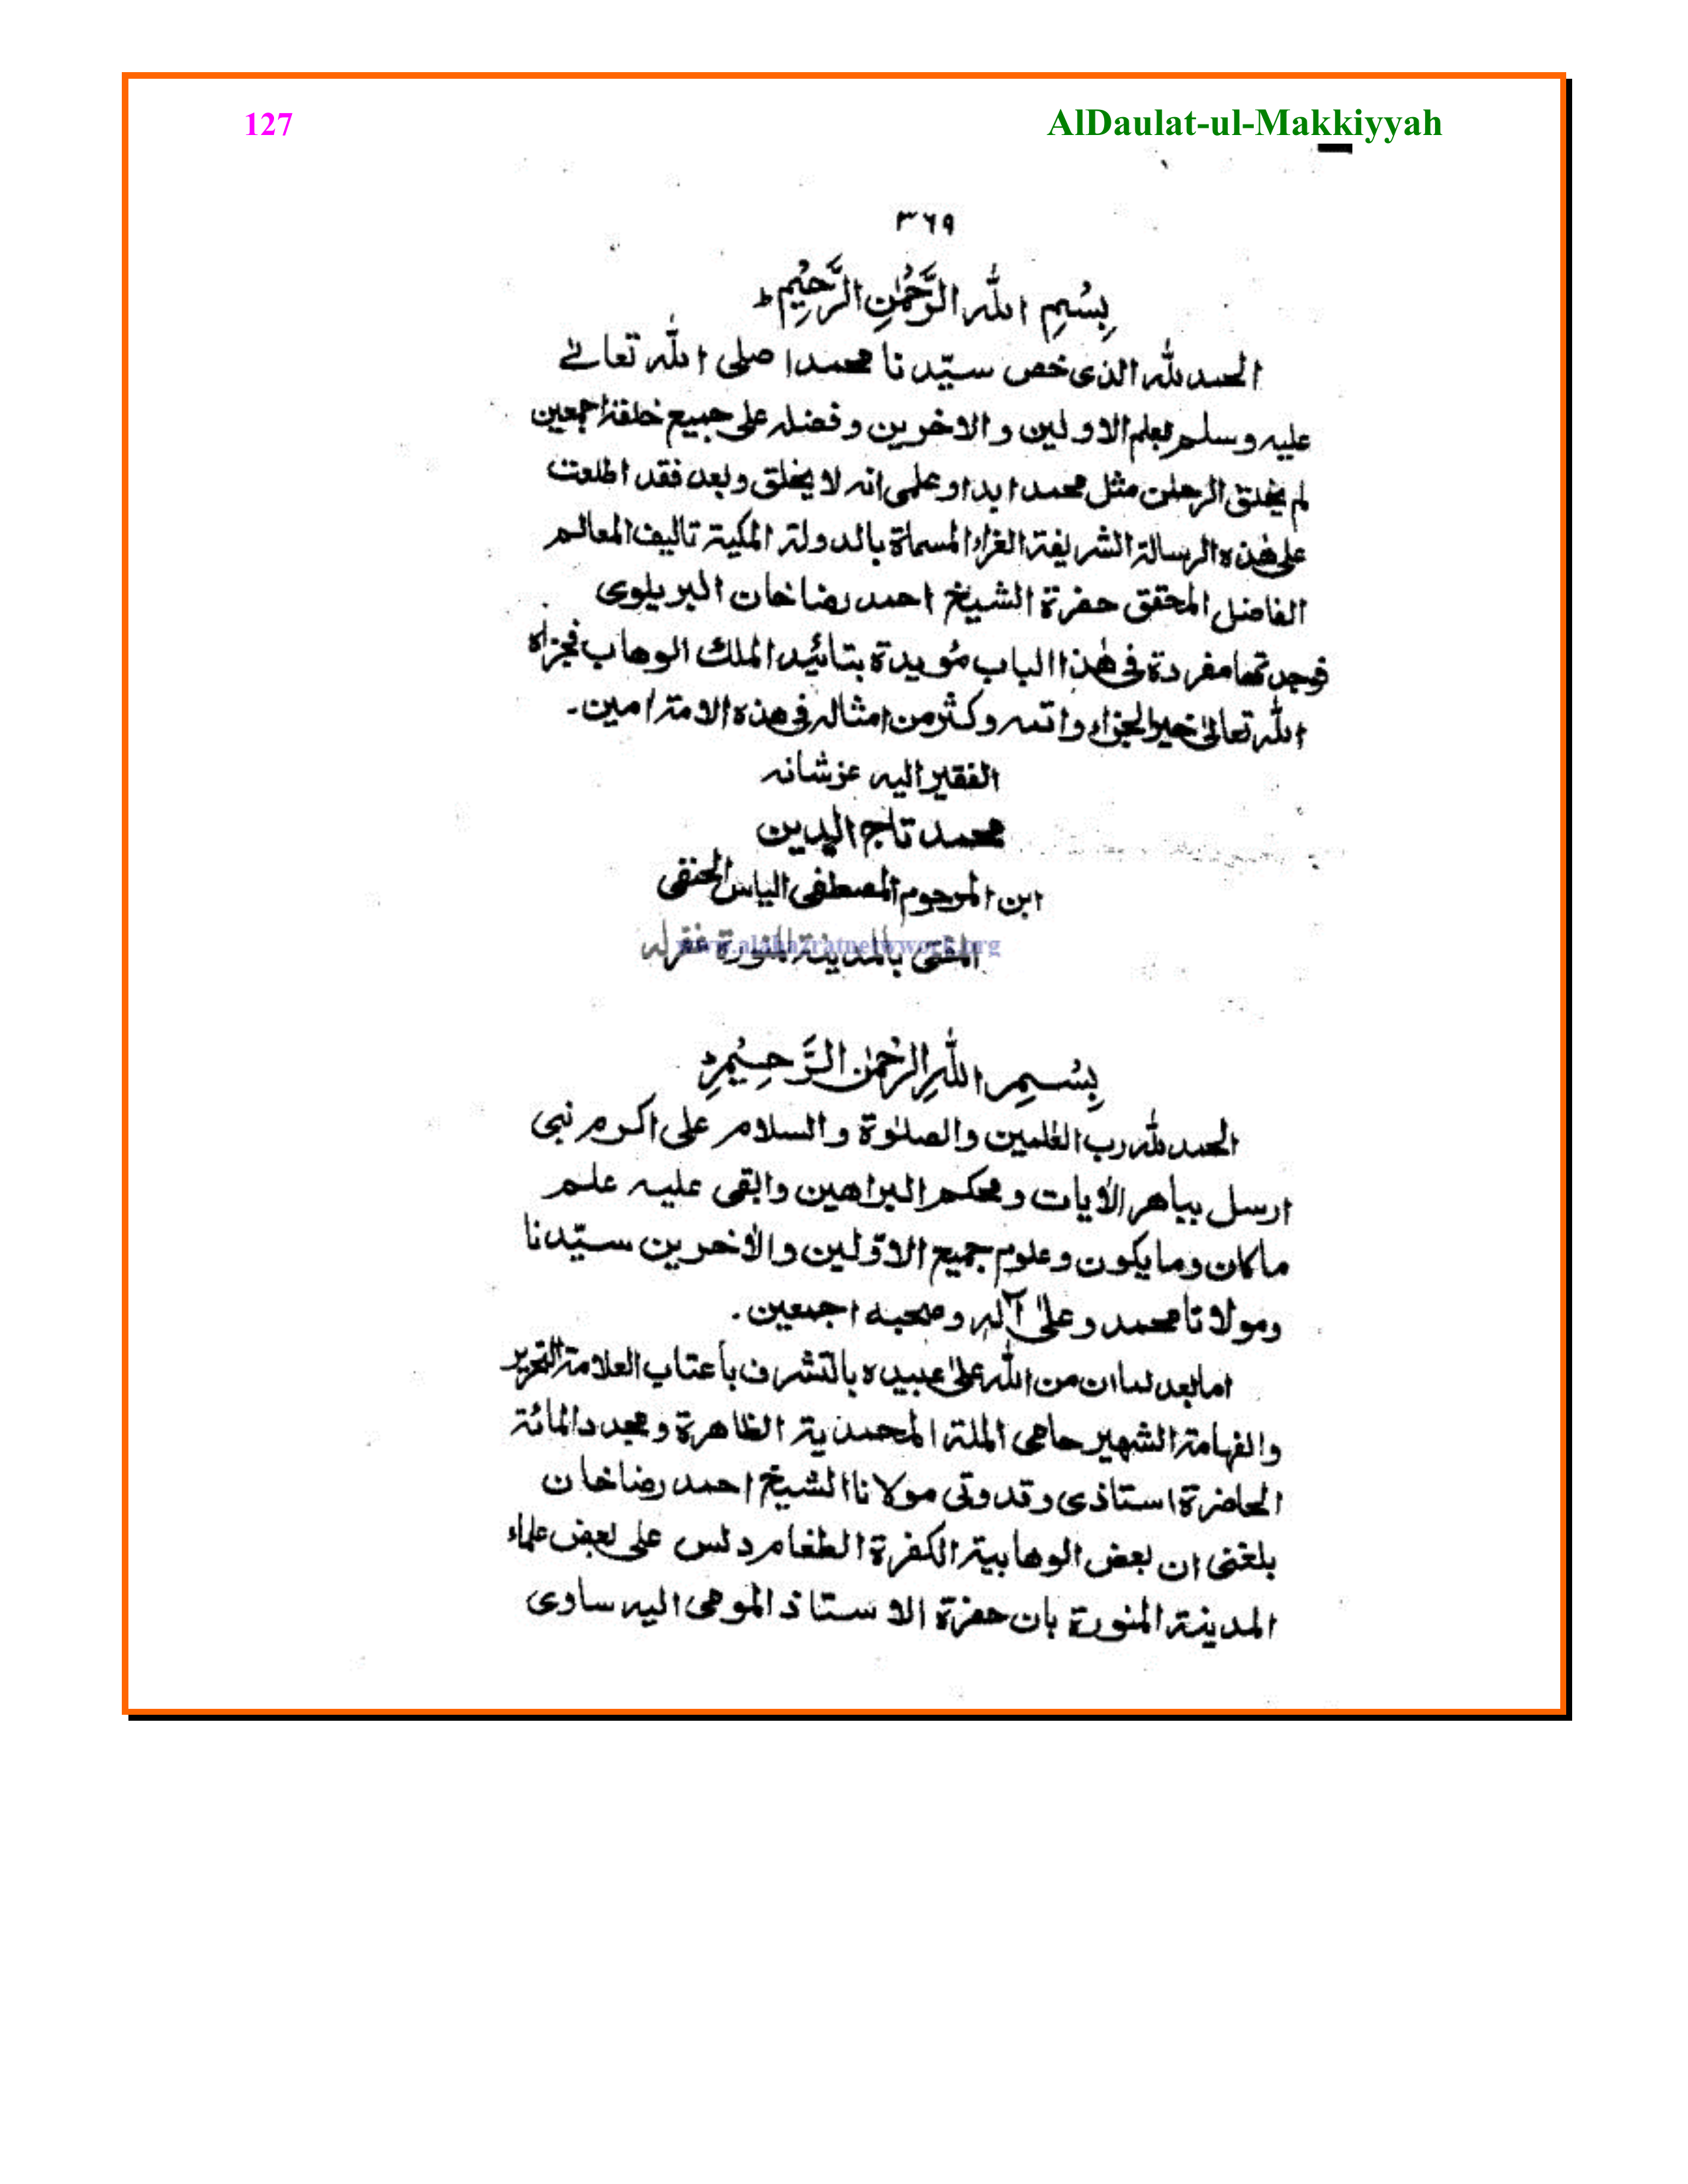 127 AlDaulat-ul-Makkiyyah
٣٦٩
بِسْمِ اللهِ الرَّحْمٰنِ الرَّحِيْمِ ط
الحمد لله الذى خص سيّدنا محمدا صلى الله تعالے
عليه وسلم بعلم الاولين والاخرين وفضله على جميع خلقه اجمعين
لم يخلق الرحمٰن مثل محمد ابدا وعلمى انه لا يخلق وبعد فقد اطلعت
على هٰذه الرسالة الشريفة الغراء المسماة بالدولة المكية تاليف المعالم
الفاضل المحقق حضرة الشيخ احمد رضا خان البريلوى
فوجدتها مفردة فى هٰذا الباب مُويدة بتائيد الملك الوهاب فجزاه
الله تعالىٰ خير الجزاء واتمه وكثر من امثاله فى هذه الامة امين۔
الفقير اليه عز شانه
محمد تاج الدين
ابن المرحوم المصطفى الياس الحنفى
المفتى بالمدينة المنورة غفر له
www.alahazratnetwork.org
بِسْمِ اللهِ الرحْمٰن الرَّحِيْمِ ط
الحمد لله رب العٰلمين والصلوٰة والسلام على اكرم نبى
ارسل بباهر الاٰيات ومحكم البراهين والقى عليه علم
ماكان وما يكون وعلوم جميع الاوّلين والاٰخرين سيّدنا
ومولانا محمد وعلىٰ آله وصحبه اجمعين.
اما بعد لما ان من الله علىٰ عبيده بالتشرف بأعتاب العلامة النحرير
والفهامة الشهير حامى الملة المحمدية الظاهرة ومجدد المائة
الحاضرة استاذى وقدوتى مولانا الشيخ احمد رضا خان
بلغنى ان بعض الوهابية الكفرة الطغام دلس على بعض علماء
المدينة المنورة بان حضرة الاستاذ المومى اليه ساوى